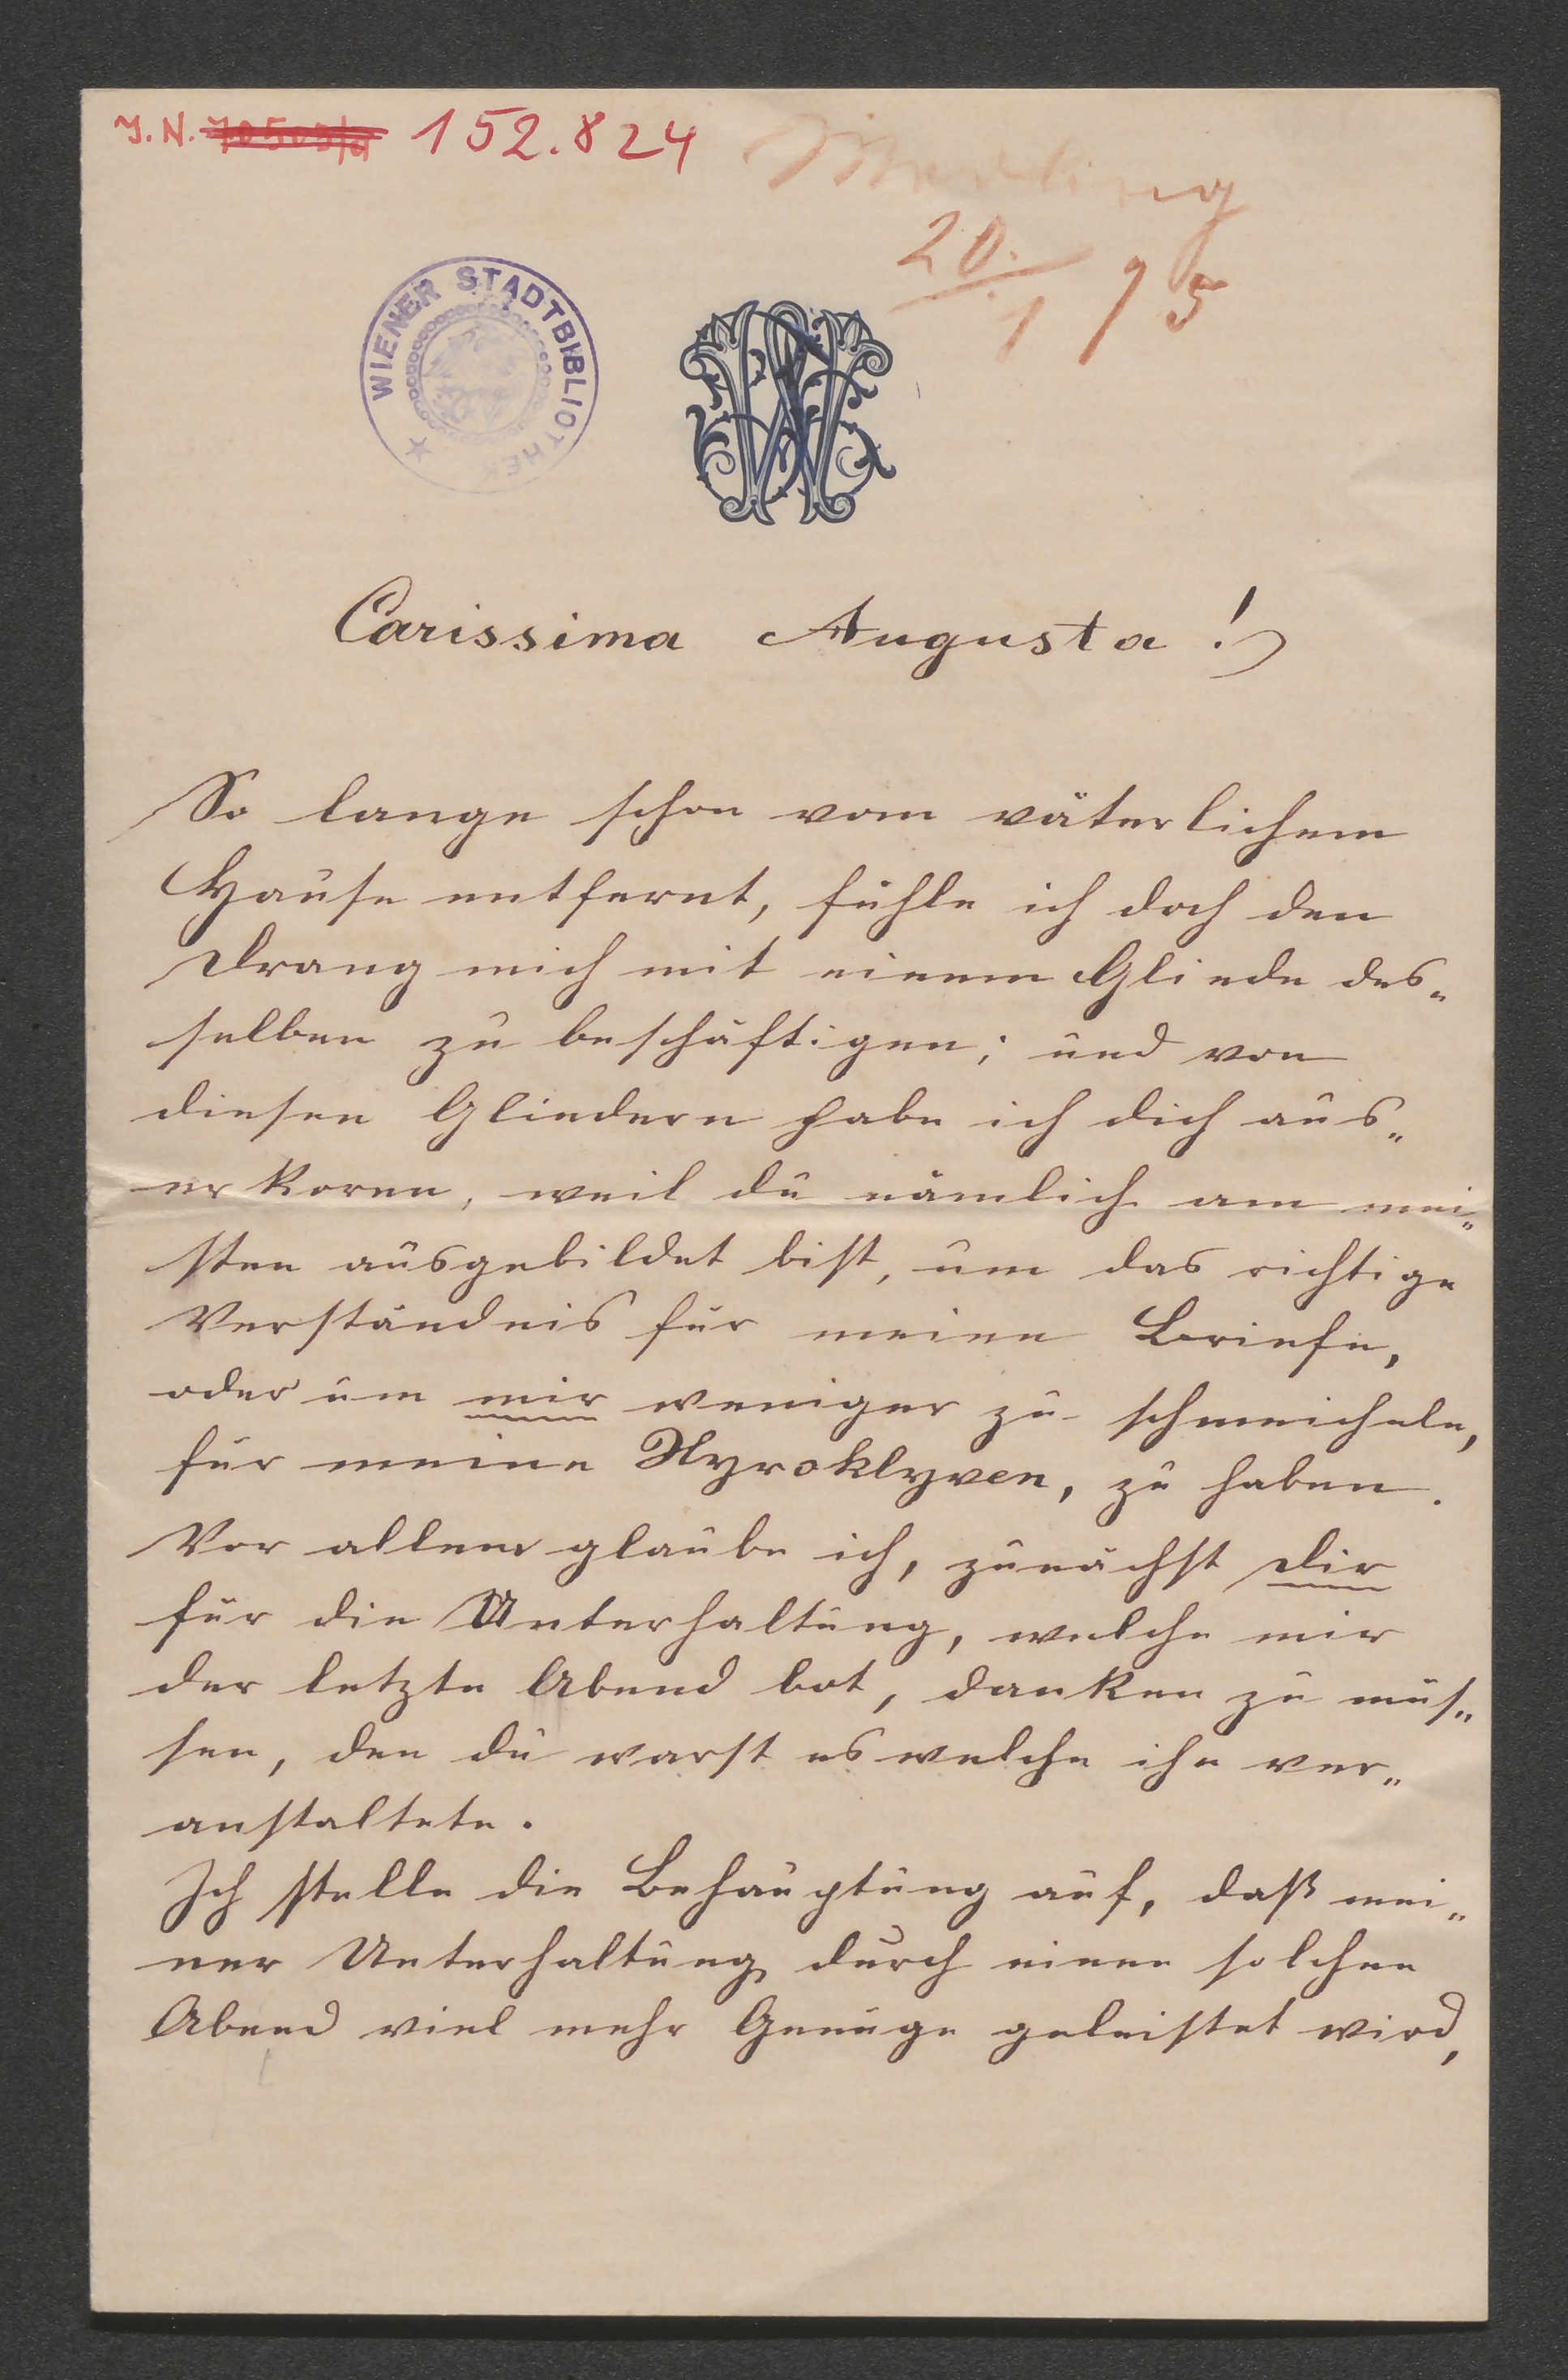 J. N. 152.824
20./1 75
WIENER STADTBIBLIOTHEK
Carissima Augusta!
So lange schon vom väterlichem
Hause entfernt, fühle ich doch den
Drang mich mit einem Gliede des„
selben zu beschäftigen; und von
diesen Gliedern habe ich dich aus„
erkoren, weil du nämlich am mei„
sten ausgebildet bist, um das richtige
Verständnis für meine Briefe,
oder um mir weniger zu schmeicheln,
für meine Hyroklyven, zu haben.
Vor allem glaube ich, zunächst Dir
für die Unterhaltung, welche mir
der letzte Abend bot, danken zu müs„
sen, den du warst es welche ihn ver„
anstaltete.
Ich stelle die Behauptung auf, daß mei„
ner Unterhaltung durch einen solchen
Abend viel mehr Genüge geleistet wird,